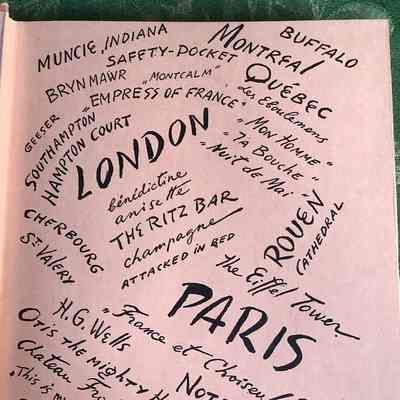 MUNCIE, INDIANA
SAFETY-DOCKET
BRYN MAWR
"MONTCALM"
"EMPRESS OF FRANCE"
MONTREAL
BUFFALO
QUÉBEC
Les Eboulements
GEESER
SOUTHAMPTON
HAMPTON COURT
LONDON
"MON HOMME"
"TA BOUCHE"
"Nuit de Mai"
bénédictine
anisette
THE RITZ BAR
champagne
ATTACKED IN BED
CHERBOURG
ST. VALERY
ROUEN
CATHEDRAL
the Eiffel Tower
PARIS
H.G. Wells
"France et Choiseul
OTIS THE MIGHTY H
Chateau
"This is
NOT